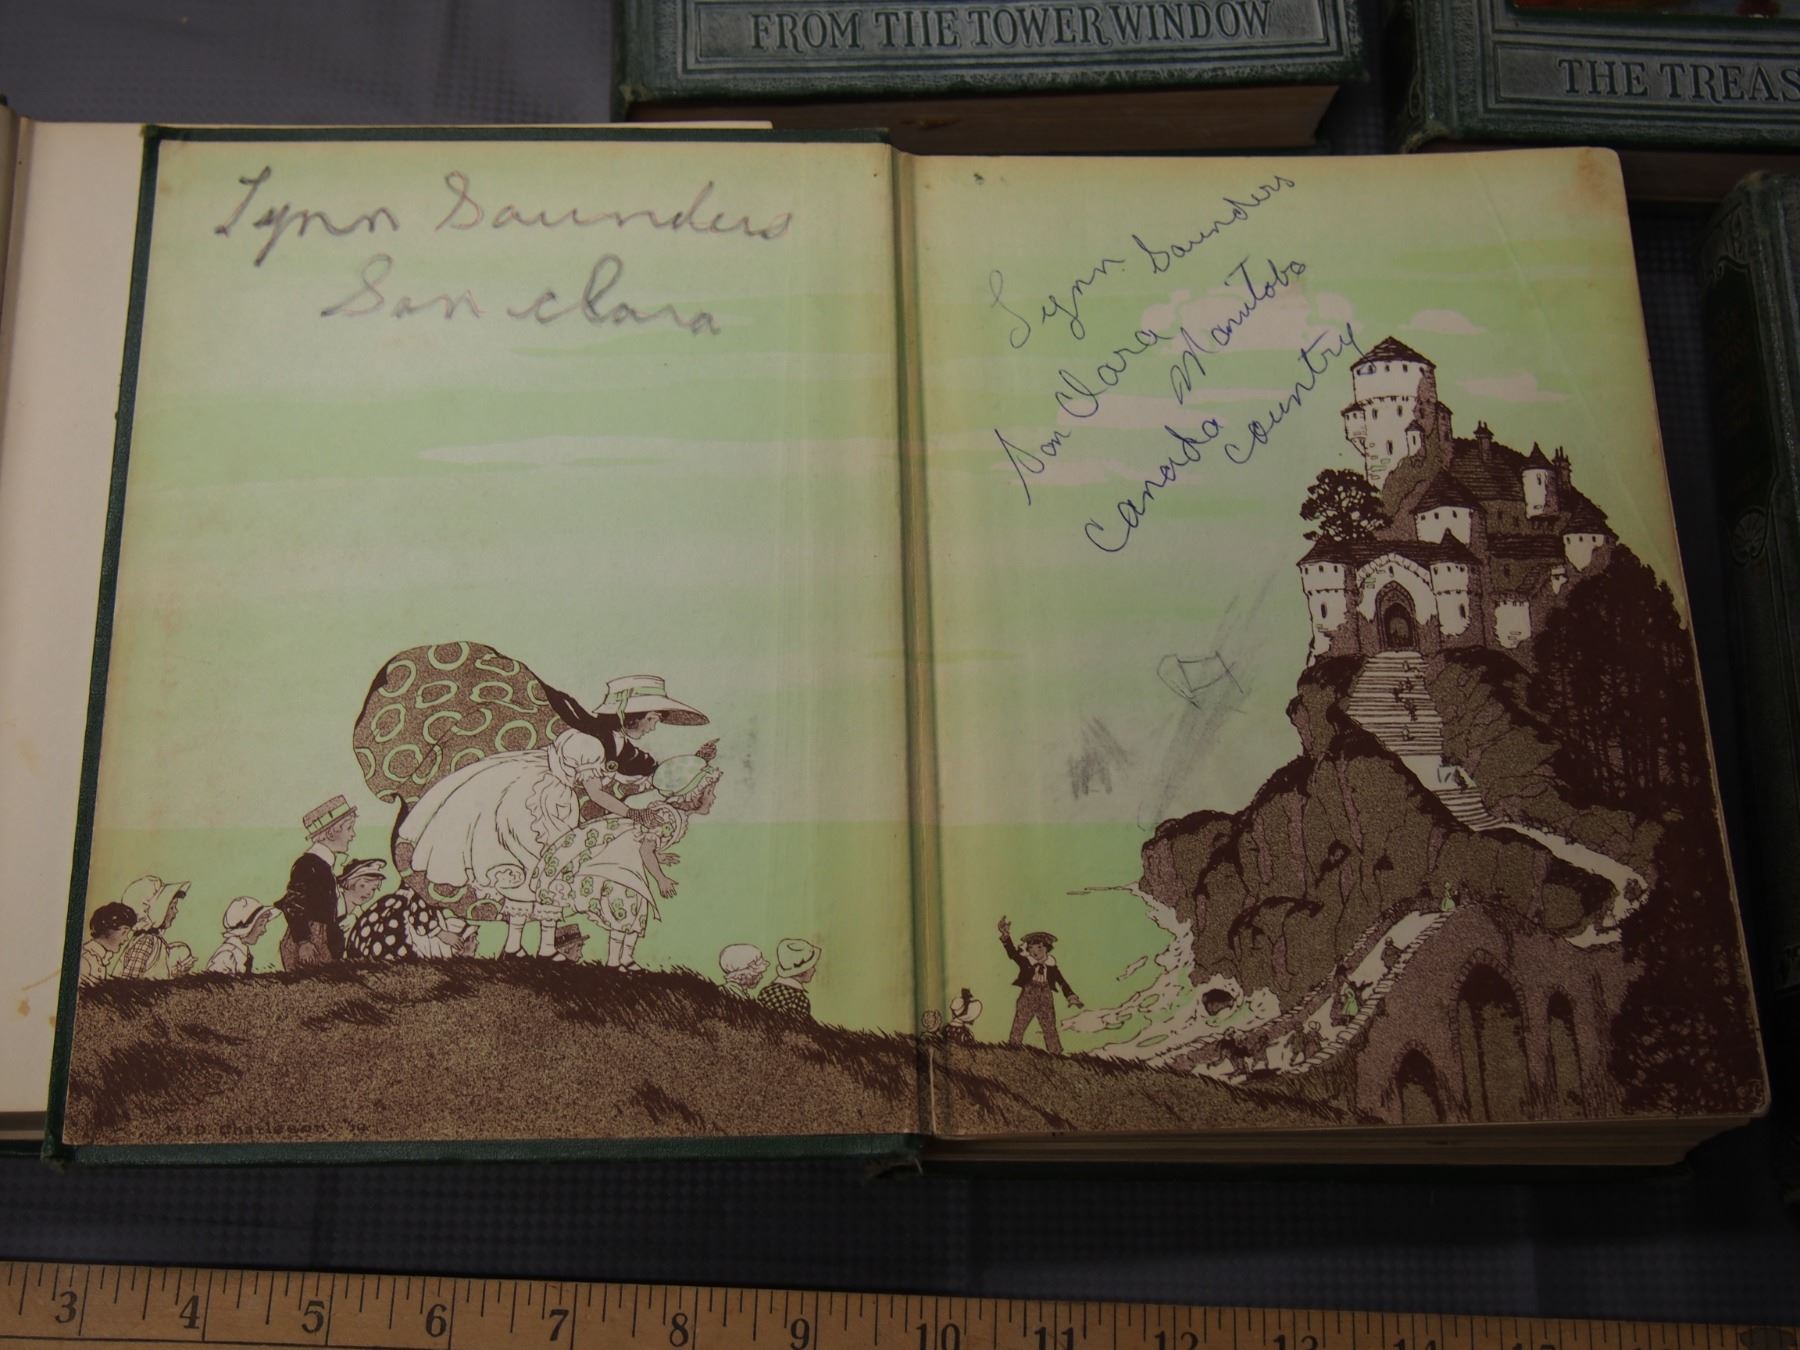 FROM THE TOWER WINDOW
THE TREAS
Lynn Saunders
San Clara
Lynn Saunders
San Clara
Manitoba
Canada
country
3 4 5 6 7 8 9 10 11 12 13 14 15